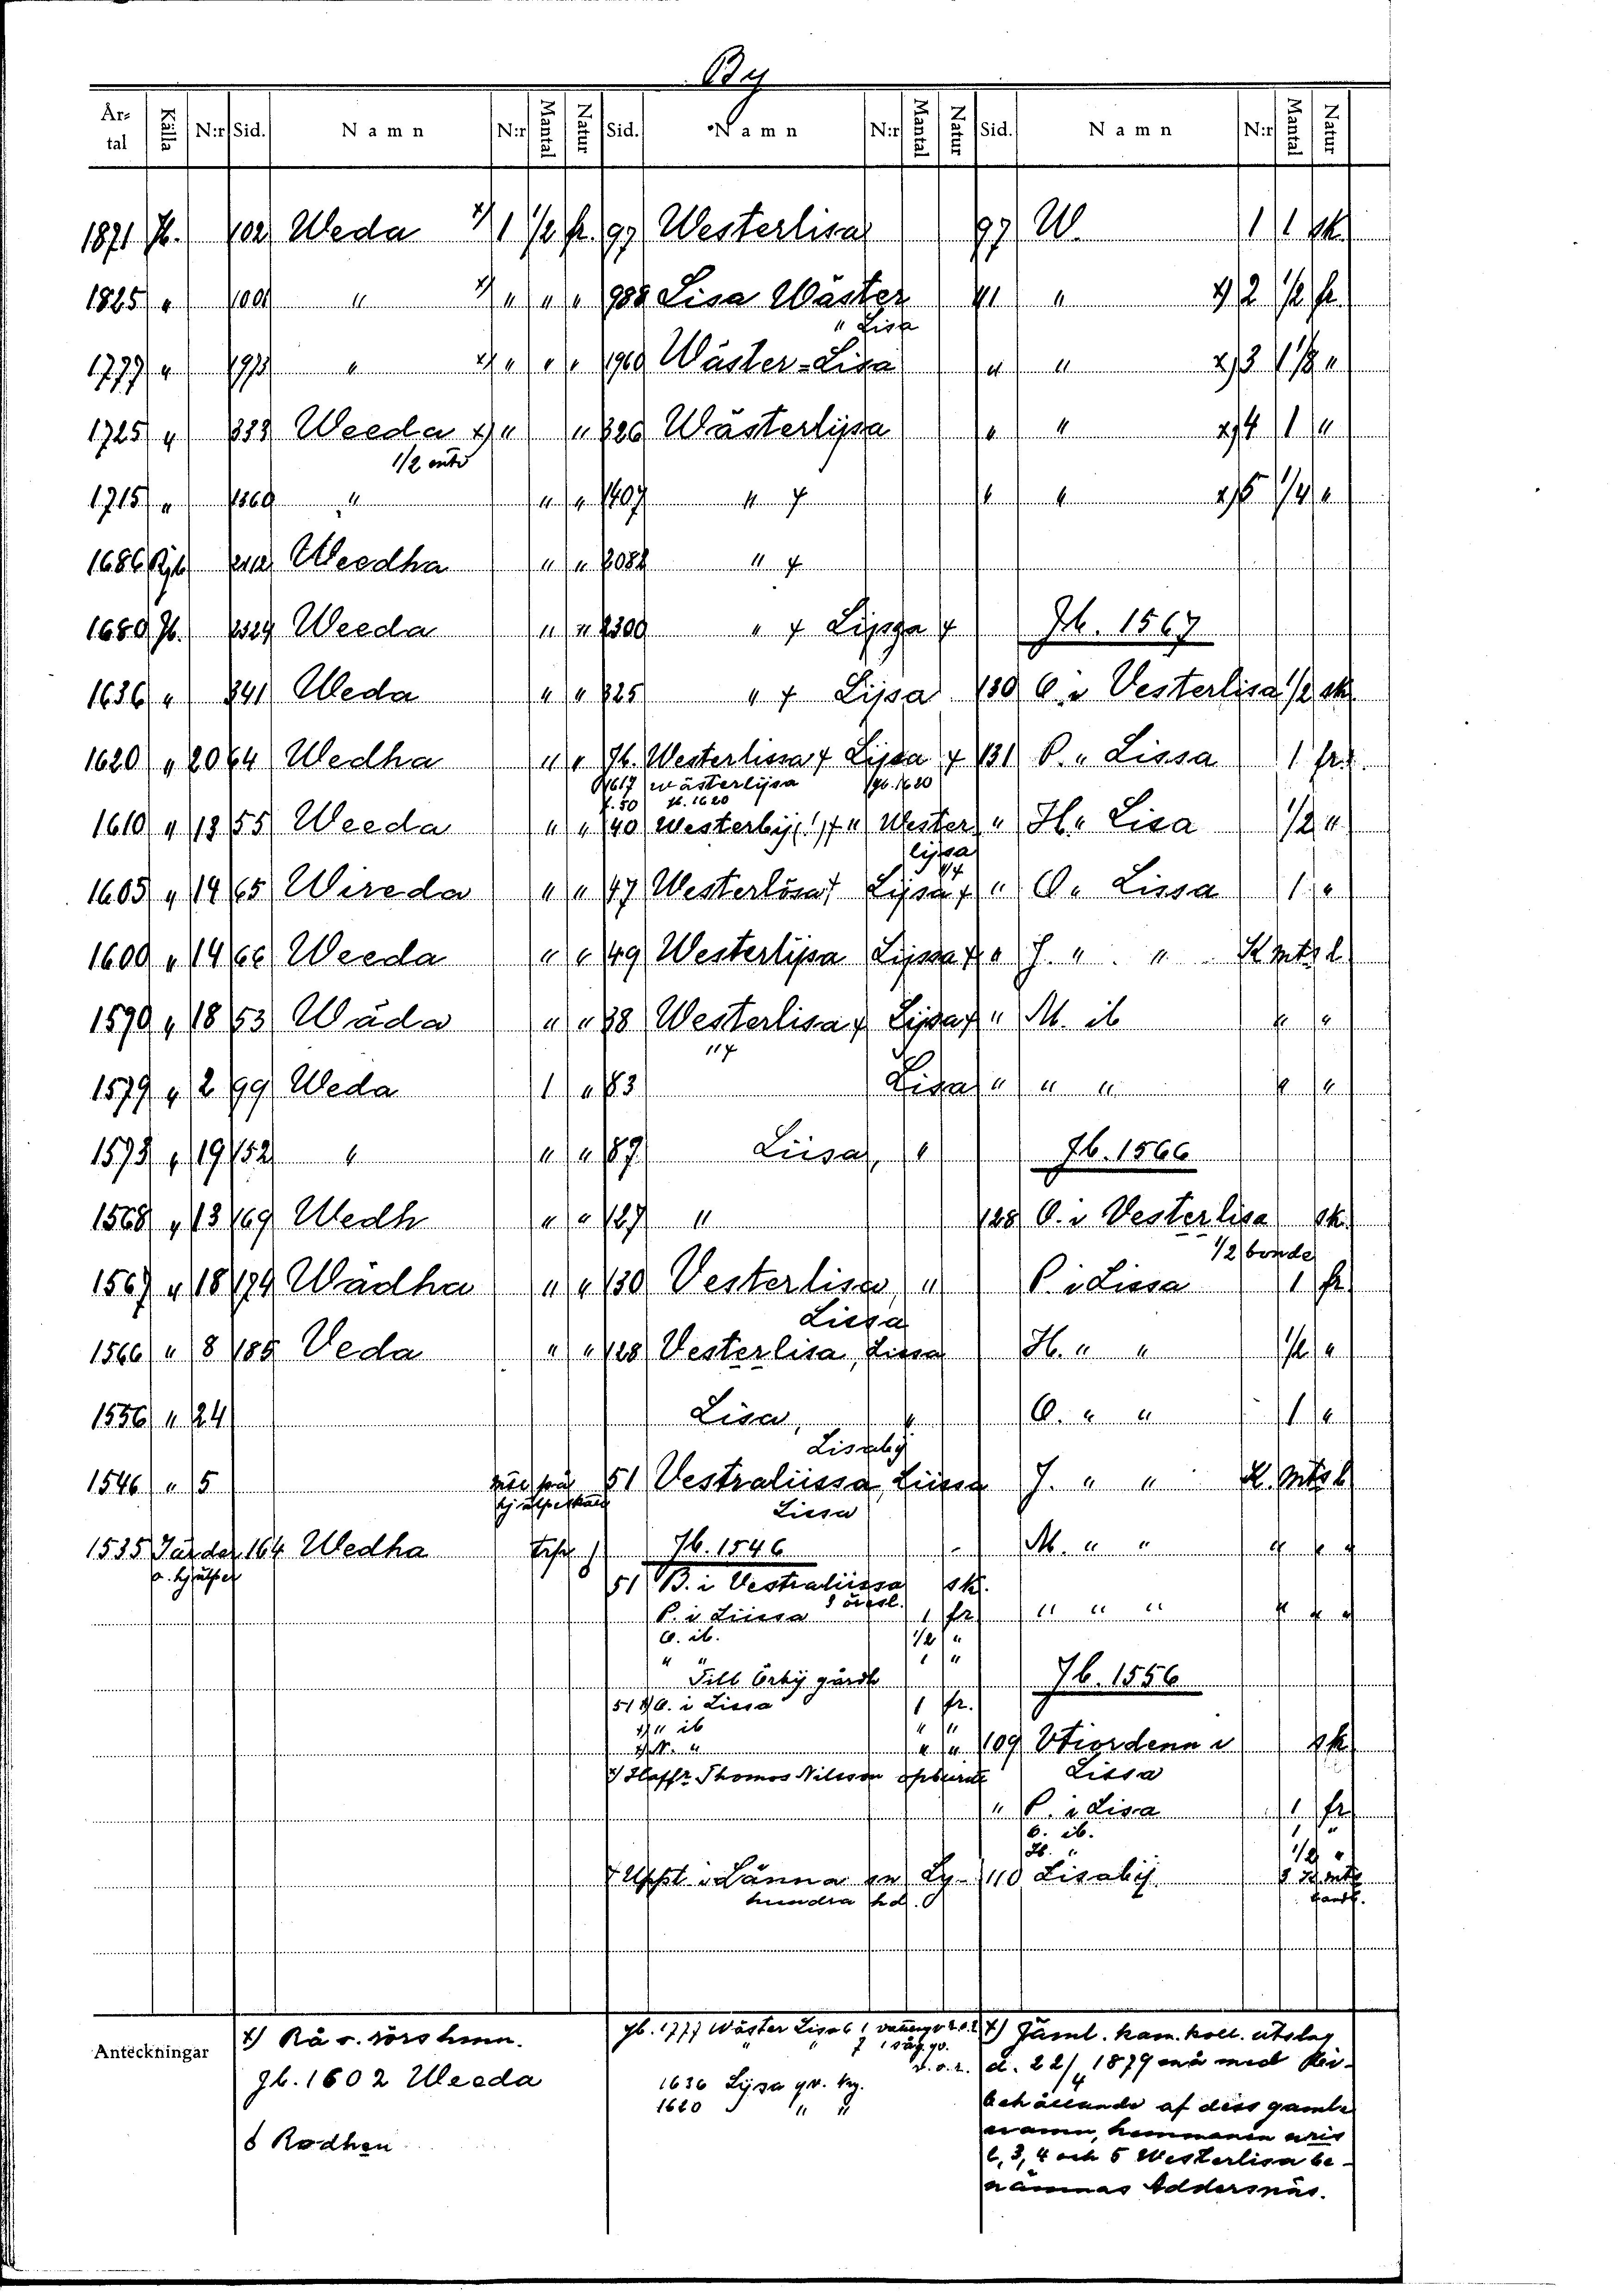 By
År-tal Källa N:r Sid. Namn N:r Mantal Natur Sid. Namn N:r Mantal Natur Sid. Namn N:r Mantal Natur
1871 Jb. 102 Weda x) 1 1/2 fr. 97 Westerlisa 97 W. 1 1 sk
1825 " 1001 " x) " " " 988 Lisa Wäster 41 " x) 2 1/2 fr.
" Lisa
1777 " 1973 " x) " " " 1960 Wäster-Lisa " " x) 3 1 1/8 "
1725 " 333 Weeda x) " " 326 Wästerlijsa " " x) 4 1 "
1/2 mtl
1715 " 1369 " " " 1407 " + " " x) 5 1/4 "
1686 Rjb Weedha " " 2082 " +
1680 Jb. 2324 Weeda " " 2300 " + Lijsza + Jb. 1567
1636 " 341 Weda " " 325 " + Lijsa 130 O. i Vesterlisa 1/2 sk
1620 " 20 64 Wedha " " Jb. Westerlissa + Lijsa + 131 P. " Lissa 1 fr.
1617 wästerlijsa Jb. 1620
f. 50 Jb. 1620
1610 " 13 55 Weeda " " 40 Westerbij(!) + " Wester " H. " Lisa 1/2 "
lijsa
1605 " 14 65 Wireda " " 47 Westerlösa + Lijsa + " O. " Lissa 1 "
1600 " 14 66 Weeda " " 49 Westerlijsa Lijssa + " J. " " K mtsl
1590 " 18 53 Wäda " " 38 Westerlisa + Lijsa + " M. ib " "
" +
1579 " 2 99 Weda 1 " 83 Lisa " " " " "
1573 " 19 152 " " " 87 Liisa, " Jb. 1566
1568 " 13 169 Wedh " " 127 " 128 O. i Vesterlisa sk
1/2 bonde
1567 " 18 174 Wädha " " 130 Vesterlisa, " P. i Lissa 1 fr
Lissa
1566 " 8 185 Veda " " 128 Vesterlisa, Lissa H. " " 1/2 "
1556 " 24 Lisa, " O. " " 1 "
Lisabij
1546 " 5 51 Vestraliissa, Liissa J. " " K. mtsl
Liesa
1535 Gärder 164 Wedha Jb. 1546 M. " " " " "
o. hjälper
51 B. i Vestraliissa sk.
P. i Liissa 1 fr. " " " " " "
O. ib. 1/2 "
" " 1 "
Till Örbij gårdh Jb. 1556
51 O. i Lissa 1 fr.
" ib " "
" " " 109 Vtiordenn i sk
x) Haffr Thomos Nilsson opburit Lissa
" P. i Lisa 1 fr
O. ib. 1 "
H. " 1/2 "
+ Uppt. i Länna en Ly- 110 Lisabij
hundra hd.
Anteckningar
x) Rå o. rörs hmn.
Jb. 1602 Weeda
d Rodhen
Jb. 1777 Wäster Lisa
1636 Lijsa qv.
1620 " "
x) Jäml. kam. koll. utslag
d. 22/4 1879 må med
behållande af dess gamla
namn, hemmanen n:ris
2, 3, 4 och 5 Westerlisa be-
nämnas Addersnäs.